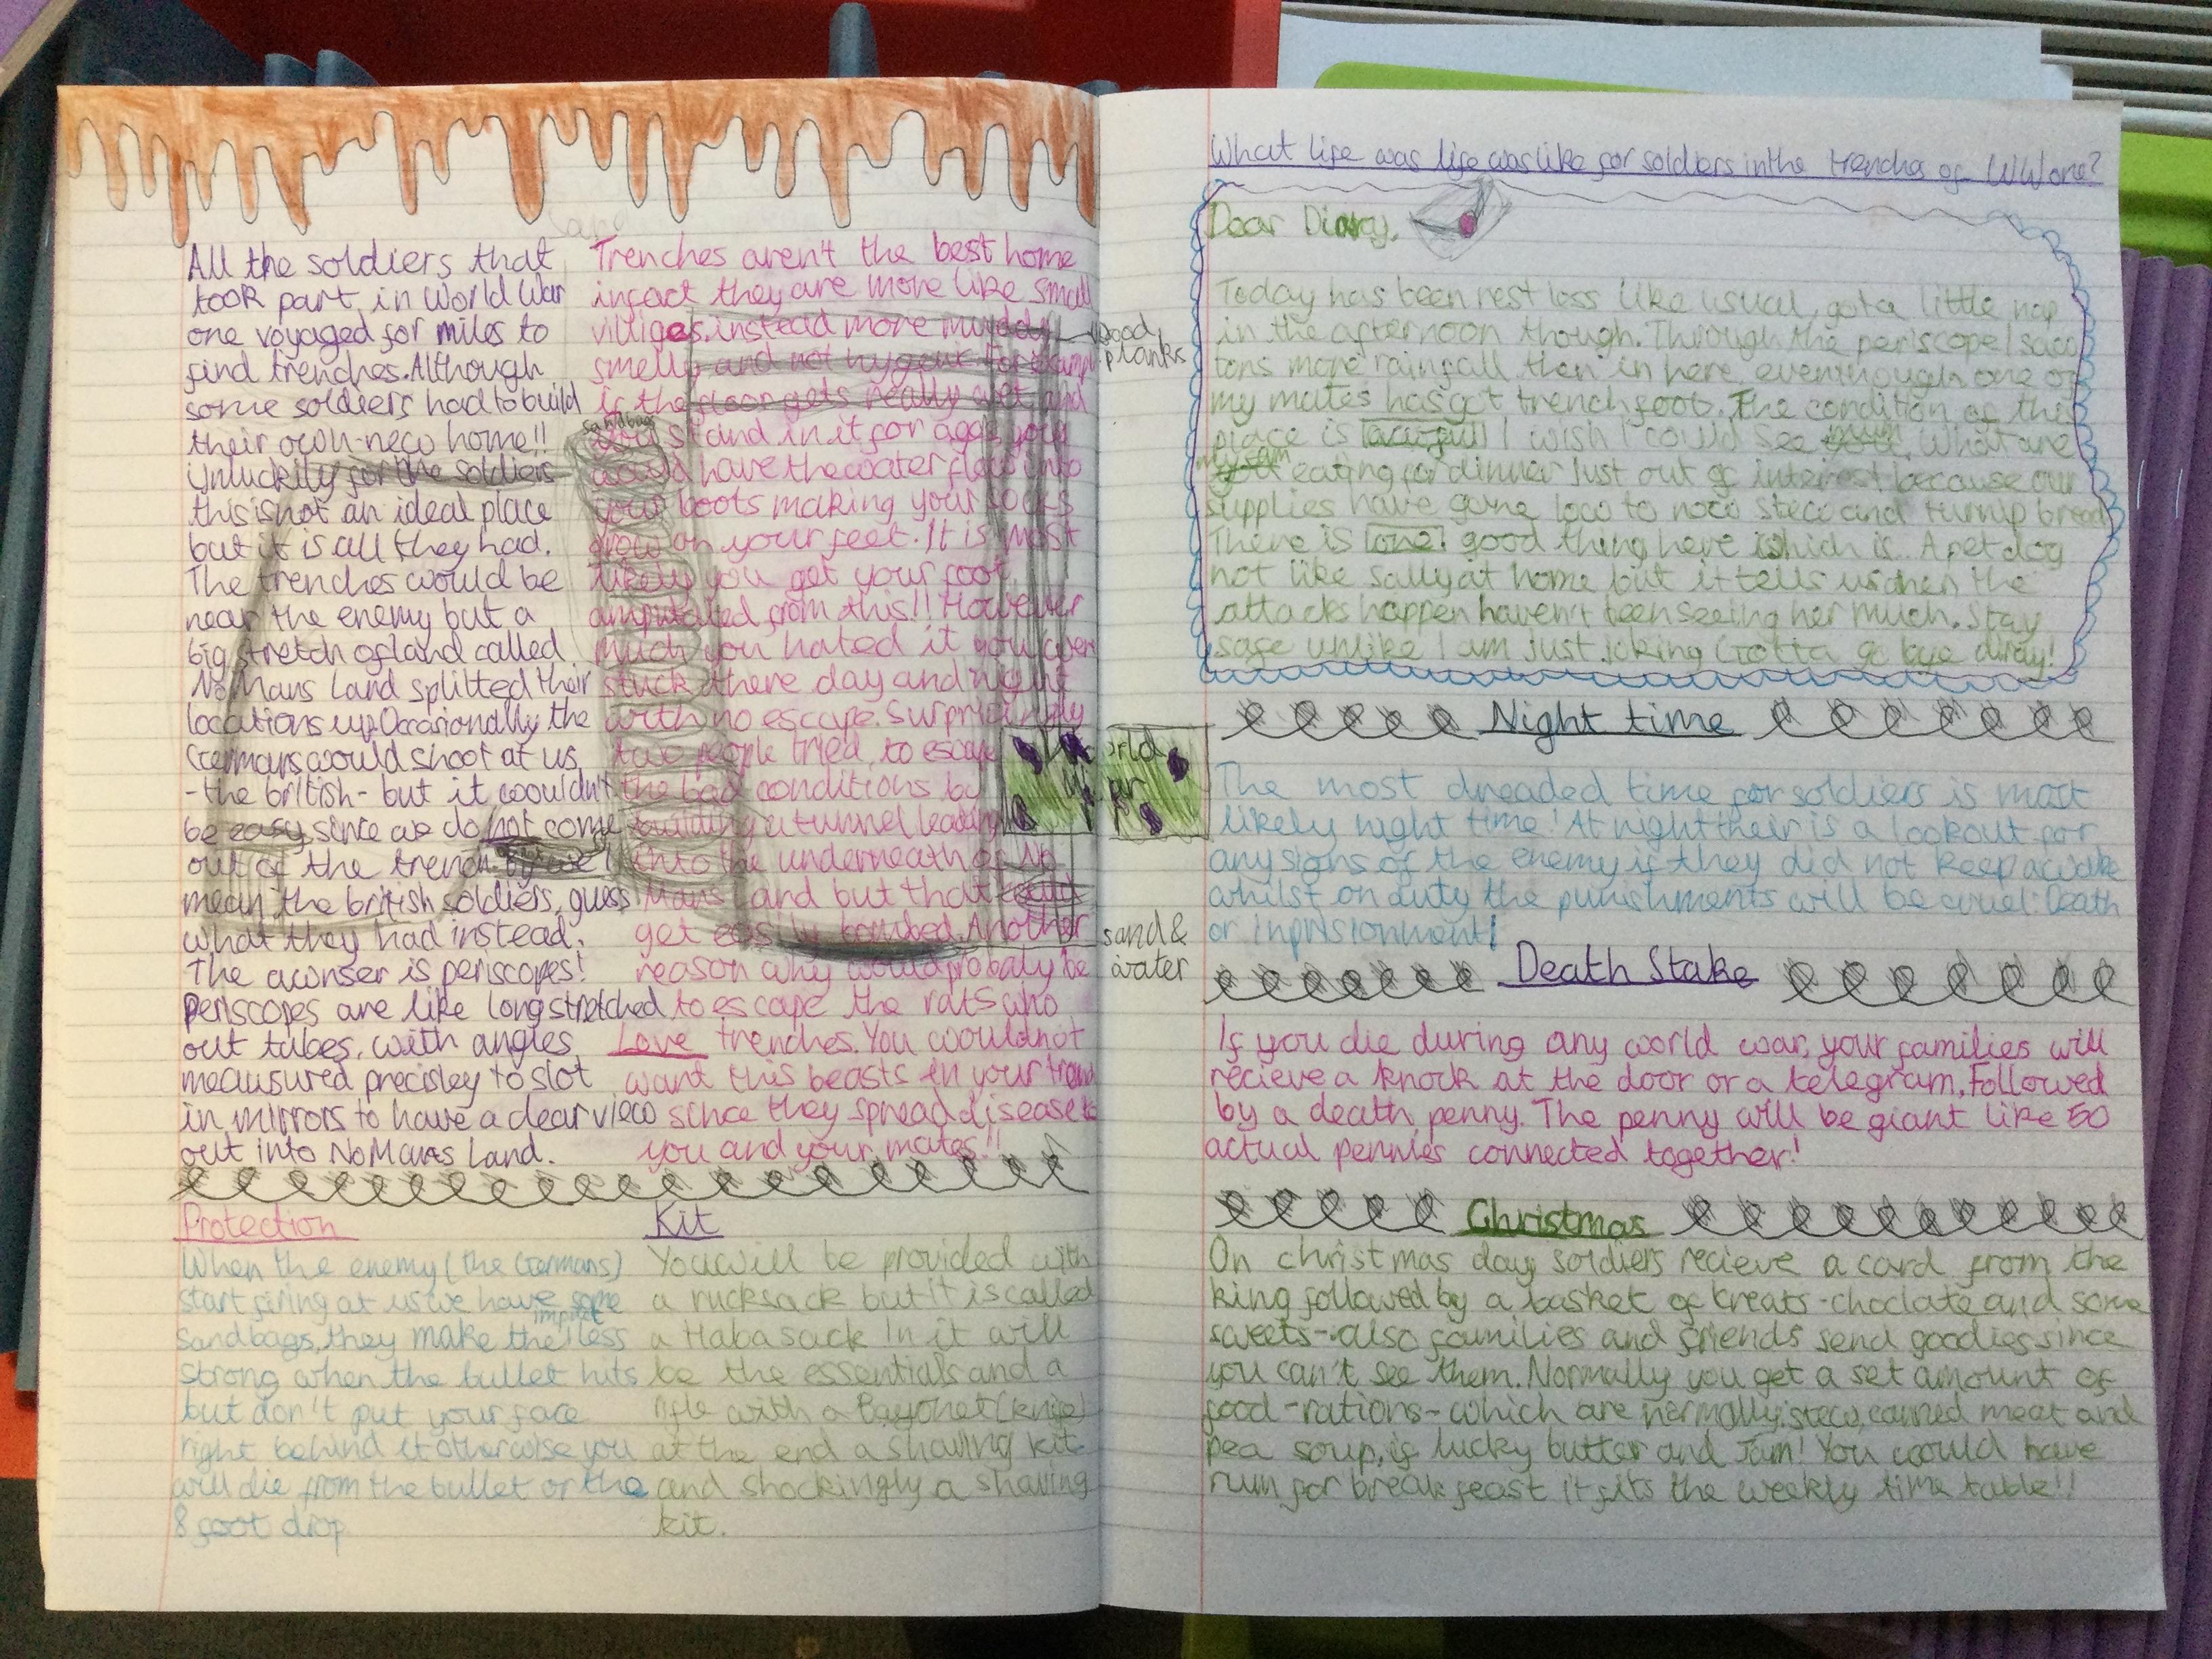 All the soldiers that
took part in World War
one voyaged for miles to
find trenches. Although
some soldiers had to build
their own-new home!!
Unluckily for the soldiers
this is not an ideal place
but it is all they had.
The trenches would be
near the enemy but a
big stretch of land called
No Mans Land splitted their
locations up. Occasionally the
Germans would shoot at us
-the british- but it wouldn't
be easy since we do not come
out of the trench by we I
mean the british soldiers, guess
what they had instead.
The awnser is periscopes!
Periscopes are like long stretched
out tubes, with angles
meausured precisley to slot
in mirrors to have a clear view
out into No Mans Land.
Trenches aren't the best home
infact they are more like small
villiges instead more muddy
smelly and not hygenic. For exampl
if the floor gets really wet and
you stand in it for ages you
would have the water flow into
your boots making your socks
grow on your feet. It is most
likely you get your foot
amputated from this!! However
much you hated it you were
stuck there day and night
with no escape. Surprisingly
two people tried to escape
the bad conditions by
building a tunnel leading
into the underneath of No
Mans Land but that
get easily bombed. Another
reason why would probaly be
to escape the rats who
Love trenches. You would not
want this beasts in your
since they spread disease to
you and your mates!!
sandbags
wood
planks
World
War
sand &
water
Protection
When the enemy (the Germans)
start firing at us we have some
sandbags, they make the impact less
strong when the bullet hits
but don't put your face
right behind it otherwise you
will die from the bullet or the
8 foot drop
Kit
You will be provided with
a rucksack but it is called
a Habasack In it will
be the essentials and a
rifle with a Bayonet (knife)
at the end a shaving kit
and shockingly a shaving
kit.
What life was life was like for soldiers in the trenches of WW one?
Dear Diary,
Today has been rest loss like usual, got a little nap
in the afternoon though. Through the periscope I saw
tons more rainfall then in here, eventhough one of
my mates has got trench foot. The condition of this
place is awfull I wish I could see What are
my fam eating for dinner Just out of interest because our
supplies have gone low to now stew and turnip bread
There is one! good thing here which is.. A pet dog
not like Sally at home but it tells us when the
attacks happen haven't been seeing her much. Stay
safe unlike I am just joking Gotta go bye diray!
Night time
The most dreaded time for soldiers is most
likely night time! At night their is a lookout for
any signs of the enemy if they did not keep awake
whilst on duty the punishments will be cruel: Death
or Inprisionment!
Death Stake
If you die during any world war, your families will
recieve a knock at the door or a telegram, Followed
by a death penny. The penny will be giant like 50
actual pennies connected together!
Christmas
On christmas day soldiers recieve a card from the
king followed by a basket of treats-choclate and some
sweets-also families and friends send goodies since
you can't see them. Normally you get a set amount of
food-rations-which are normally: stew, canned meat and
pea soup, if lucky butter and Jam! You would have
rum for breakfeast it fits the weekly time table!!